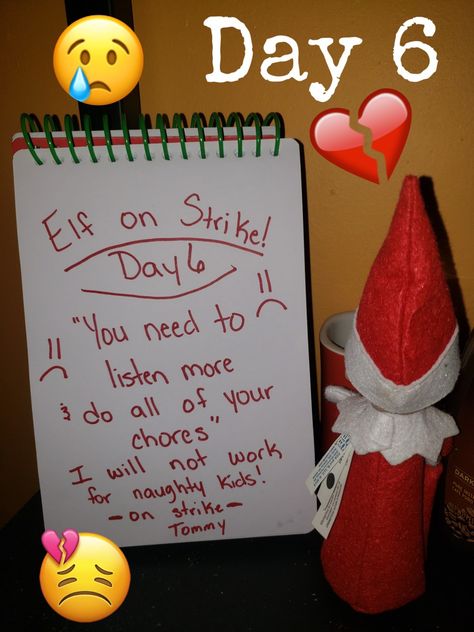 Day 6
Elf on Strike!
Day 6
"You need to
listen more
& do all of your
chores"
I will not work
for naughty kids!
- on strike -
Tommy
DARK